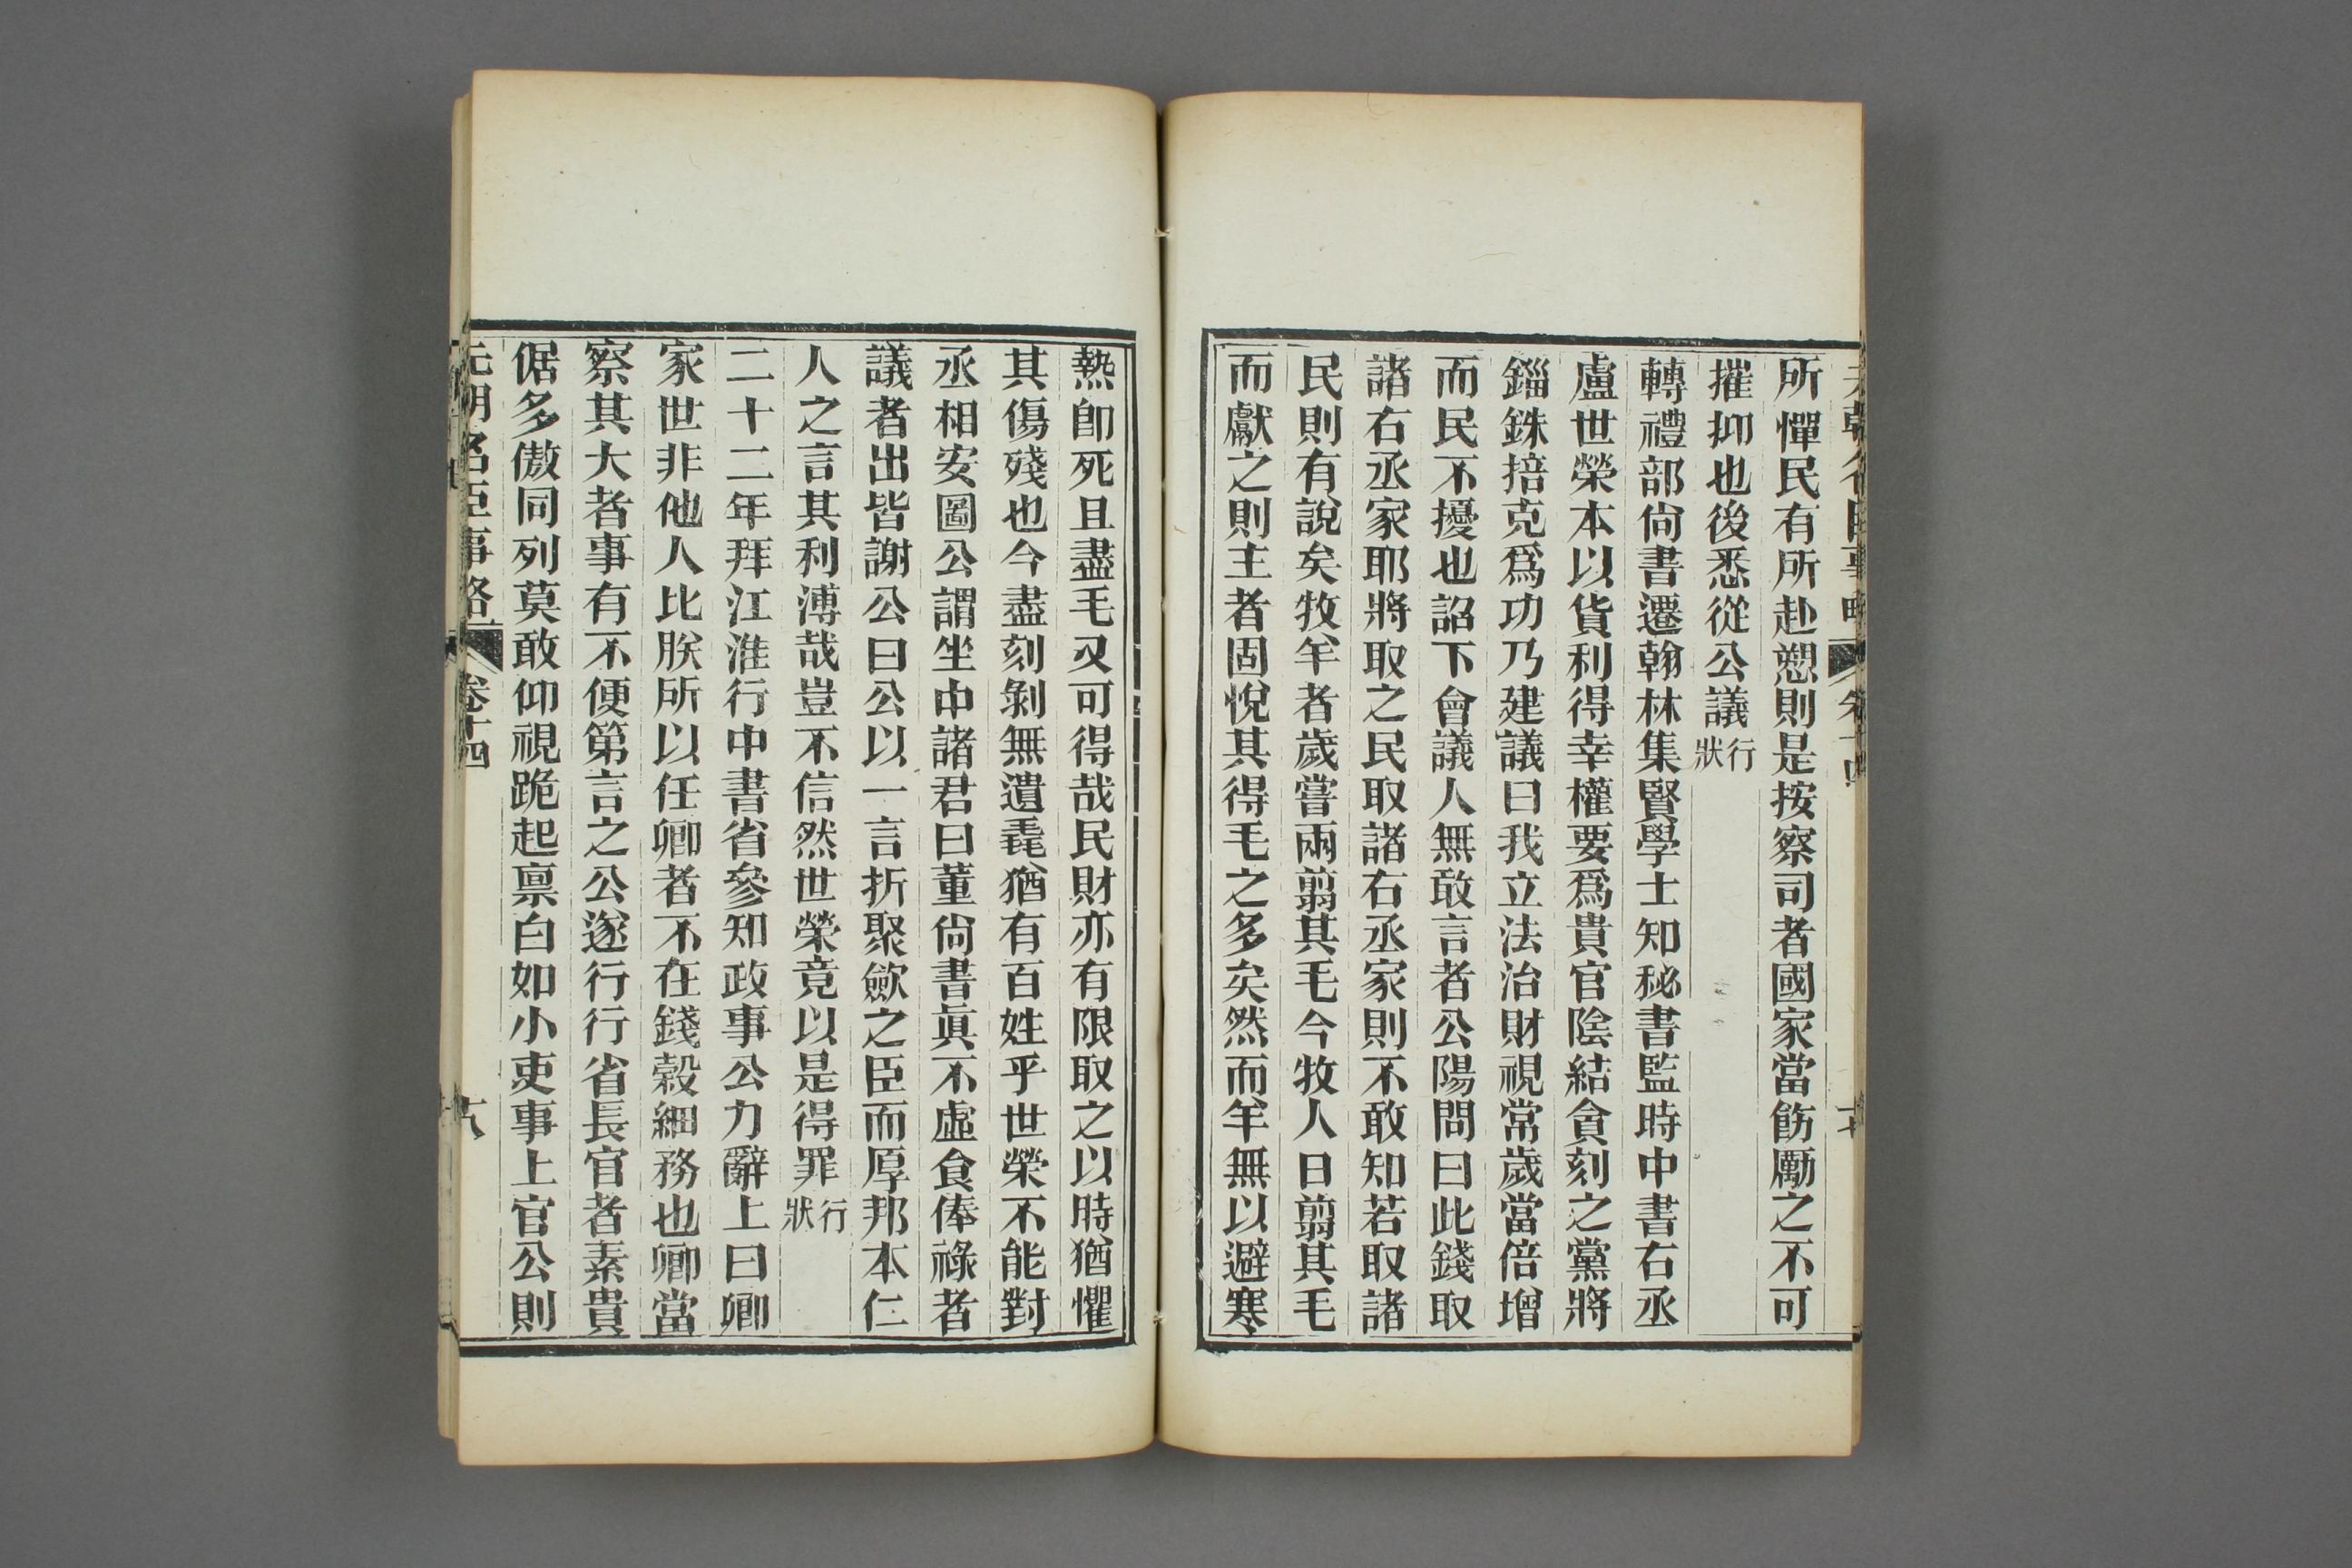 所憚民有所赴愬則是按察司者國家當飭勵之不可
摧抑也後悉從公議行狀
轉禮部尙書遷翰林集賢學士知秘書監時中書右丞
盧世榮本以貨利得幸權要爲貴官陰結貪刻之黨將
錙銖掊克爲功乃建議曰我立法治財視常歲當倍增
而民不擾也詔下會議人無敢言者公陽問曰此錢取
諸右丞家耶將取之民取諸右丞家則不敢知若取諸
民則有說矣牧羊者歲嘗兩翦其毛今牧人日翦其毛
而獻之則主者固悅其得毛之多矣然而羊無以避寒
熱卽死且盡毛又可得哉民財亦有限取之以時猶懼
其傷殘也今盡刻剝無遺毳猶有百姓乎世榮不能對
丞相安圖公謂坐中諸君曰董尙書眞不虛食俸祿者
議者出皆謝公曰公以一言折聚歛之臣而厚邦本仁
人之言其利溥哉豈不信然世榮竟以是得罪行狀
二十二年拜江淮行中書省參知政事公力辭上曰卿
家世非他人比朕所以任卿者不在錢穀細務也卿當
察其大者事有不便第言之公遂行行省長官者素貴
倨多傲同列莫敢仰視跪起禀白如小吏事上官公則
元朝名臣事略 卷十四 十八